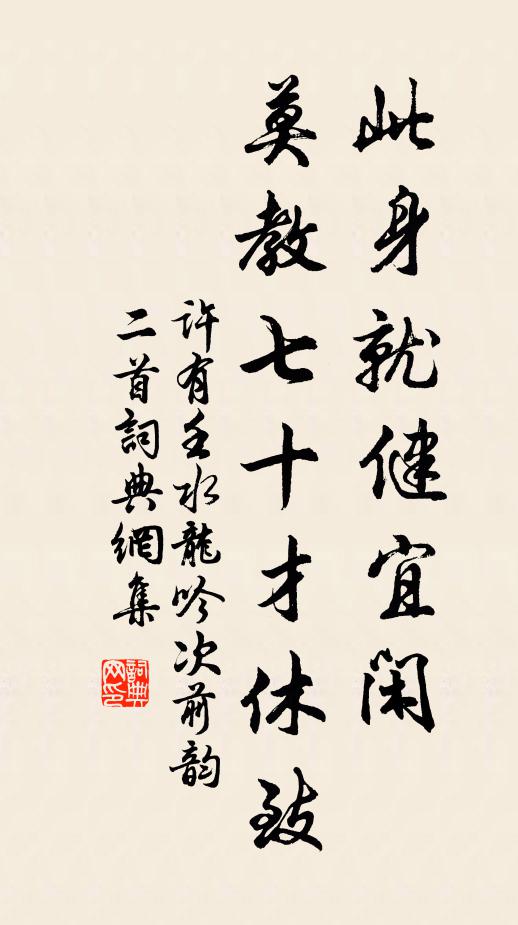 此身就健宜闲
莫教七十才休致
许有壬水龍吟次前韵
二首詞典網集
詞典网印